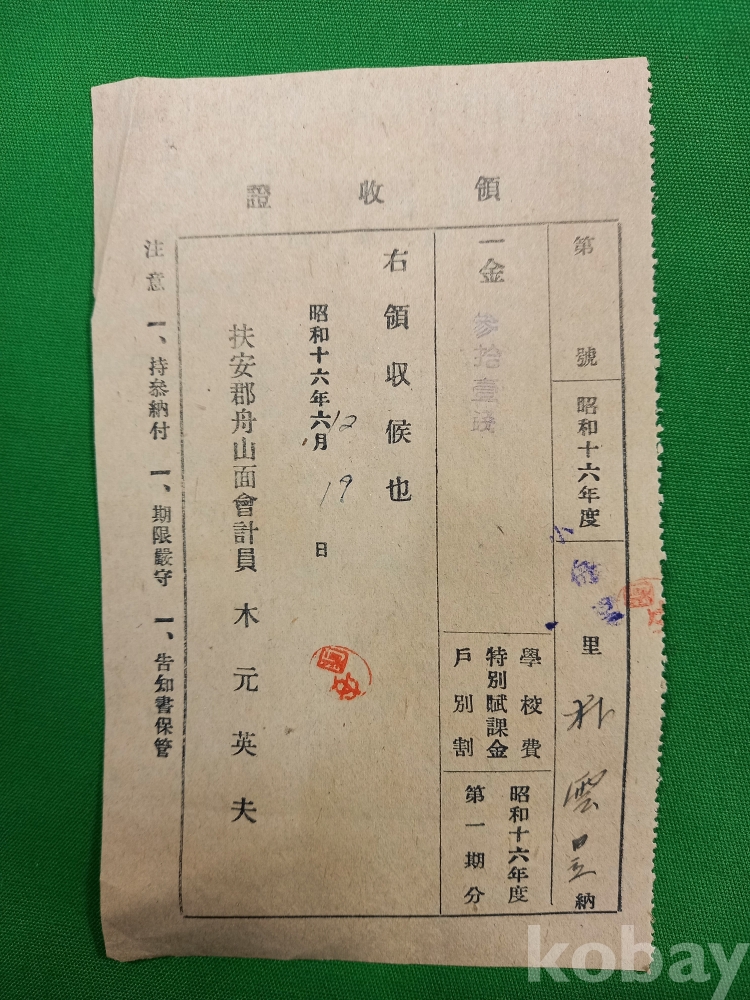 領收證
第 號
昭和十六年度
里
雲
納
一金 參拾壹錢
學校費
特別賦課金
戶別割
昭和十六年度
第一期分
右領収候也
昭和十六年六月 12
19 日
扶安郡舟山面會計員 木元英夫
注意 一、持參納付 一、期限嚴守 一、告知書保管
kobay